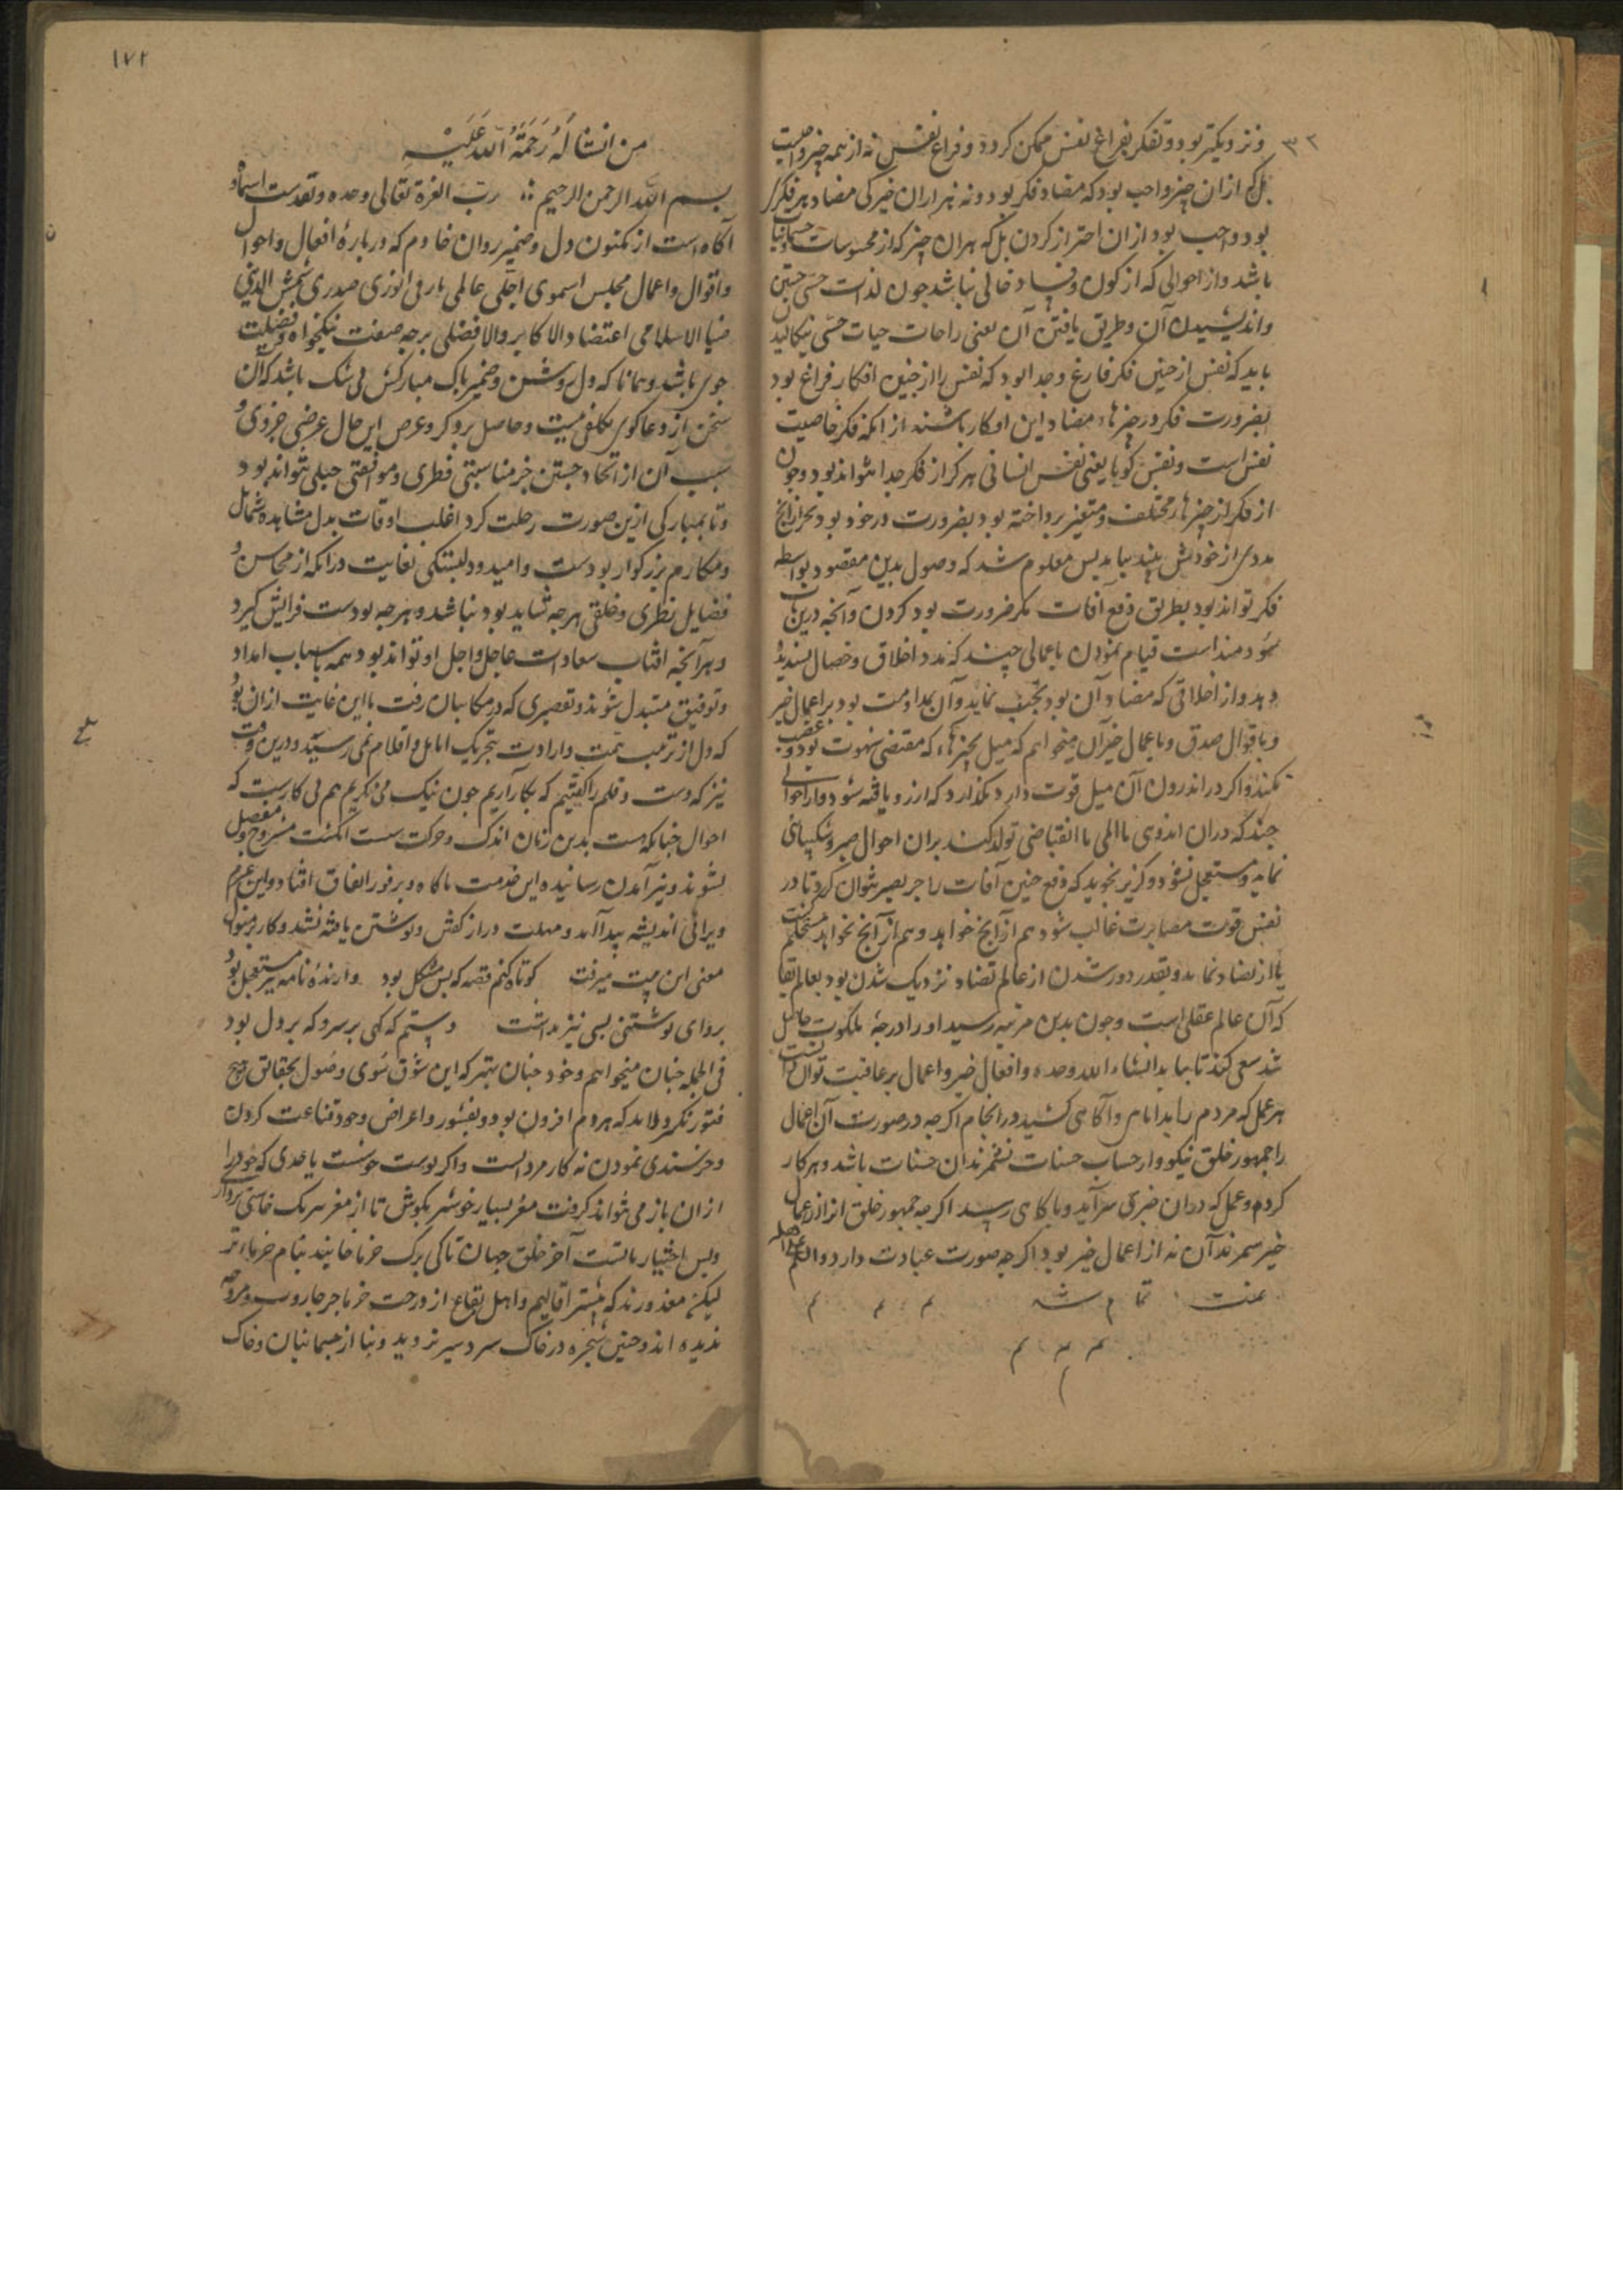 ٣٢
ونزدیکتر بود و تفکر بفراغ نفس ممکن کردد و فراغ نفس نه از همه چیز واجبست
بل که ازان چیز واجب بود که مضاد فکر بود و نه هر ازان چیز کی مضاد هر فکر
بود واجب بود ازان احتراز کردن بل که هران چیز که از محسوسات جسمانیا
باشد و از احوالی که از کون و فساد خالی نباشد جون لذات حسی جستن
و اندیشیدن آن و طریق یافتن آن یعنی راحات حیات حسی
باید که نفس از چنین فکر فارغ و جدا بود که نفس را از چنین افکار فراغ بود
بضرورت فکر در چیزهاء مضاد این افکار باشند از انکه فکر خاصیت
نفس است و نفس کویا یعنی نفس انسانی هرکز از فکر جدا نتواند بود و چون
از فکر از چیزهاء مختلف و متغیر پرداخته بود بضرورت در خود بود
مددی از خودش بیند بباید پس معلوم شد که وصول بدین مقصود بواسطه
فکر تواند بود بطریق دفع آفات مکر ضرورت بود کردن و آنچه درین باب
سودمند است قیام نمودن باعمالی چند که مدد اخلاق و خصال پسندیده
دهد و از اخلاقی که مضاد آن بود تجنب نماید و آن بمداومت بود بر اعمال خیر
و باقوال صدق و باعمال خیر آن میخواهم که میل بچیزهاء که مقتضی شهوت بود و غضب
نکند و اکر در اندرون آن میل قوت دارد نکذارد که ارزو یافته شود و از احوالی
چند که دران اندوهی یا المی یا انقباضی تولد کند بران احوال صبر و شکیبائی
نماید و مستعجل نشود و کزیر نجوید که دفع چنین آفات را جز بصبر نتوان کرد تا در
نفس قوت مصابرت غالب شود هم از آنچ خواهد و هم از آنچ نخواهد
یا از تضاد نماند و بقدر دور شدن از عالم تضاد نزدیک شدن بود بعالم بقا
که آن عالم عقلی است و چون بدین مرتبه رسید او را درجهٔ ملکوت حاصل
شد سعی کند تا بیابد انشاء الله وحده و افعال خیر و اعمال بر عاقبت توان
هر عمل که مردم را بدانایی و آکاهی کشید در انجام اکرچه در صورت آن اعمال
را جمهور خلق نیکو و از حساب حسنات نشمرند آن حسنات باشد و هر کار
کردم و عمل که دران خبری سرآید و باکاهی رسید اکرچه جمهور خلق انرا از اعمال
خیر شمرند آن نه از اعمال خیر بود اکرچه صورت عبادت دارد والله اعلم
تمت تمام شد م م م
م م م
١٧٢
من انشائه رحمة الله علیه
بسم الله الرحمن الرحیم رب العزة تعالی وحده و تقدست اسماؤه
آکاه است از مکنون دل و ضمیر روان خادم که در بارهٔ افعال و احوال
و اقوال و اعمال مجلس اسموی اجلی عالمی بارعی انوری صدری شمس الدینی
ضیا الاسلامی اعتضاد الاکابر و الافضلی برچه صفت نیکخواه و فضیلت
جوی باشد و همانا که دل روشن و ضمیر پاک مبارکش بی شک باشد که آن
سخن از دعاکوی تکلفی نیست و حاصل بر و کر و عرص این حال عرضی جزوی و
سبب آن از اتحاد جستن جز مناسبتی فطری و موافقتی جبلی نتواند بود
و تا بمبارکی ازین صورت رحلت کرد اغلب اوقات بدل مشاهده شمایل
و مکارم بزرکوار بودست و امید و دلبستکی بغایت در انکه از محاسن و
فضایل نظری و خلقی هرچه شاید بود نباشد و هرچه بودست فزایش کیرد
و هرآنچه اقتاب سعادات عاجل و اجل او تواند بود همه باسباب امداد
و توفیق متبدل شوند و تقصیری که در مکاتبات رفت تا این غایت ازان بود
که دل از ترتیب همت و ارادت بتحریک انامل و اقلام نمی رسید و درین وقت
نیز که دست و قلم را کفتیم که بکار آریم چون نیک می نکریم هم بی کارست که
احوال چنانکه هست بدین زبان اندک و حرکت سست آکنت مشروح و مفصل
نشوند و نیز آمدن رسانیده این خدمت ناکاه و بر فور اتفاق افتاد و این عزم
ویرا بی اندیشه پیدا آمد و مهلت دراز کفتن و نوشتن یافته نشد و کار بر منوال
معنی این بیت میرفت کوتاه کنم قصه که بس مشکل بود و ارندهٔ نامه نیز مستعجل بود
پروای نوشتنی بسی نیز نداشت دستم که کهی بر سر و که بر دل بود
فی الجمله چنان میخواهم و خود چنان بهتر که این شوق سوی وصول بحقائق هیچ
فتور نکیرد و لابد که هر دم افزون بود و بقشور و اعراض وجود قناعت کردن
و خرسندی نمودن نه کار مردانست و اکر پوست خوشست یا حدی که خود را
ازان باز می نتواند کرفت مغز بسیار خوشتر بکوش تا از مغز هر یک خاستی بردار
و پس اختیار بدانست آخر خلق جهان تا کی برک خرما خایند بنام خرماء تر
لیکن معذورند که بیشتر اقالیم و اهل بقاع از درخت خرما جز جاروب و مروحه
ندیده اند و چنین شجره در خاک سردسیر نروید و بنا از جسمانیان و خاک